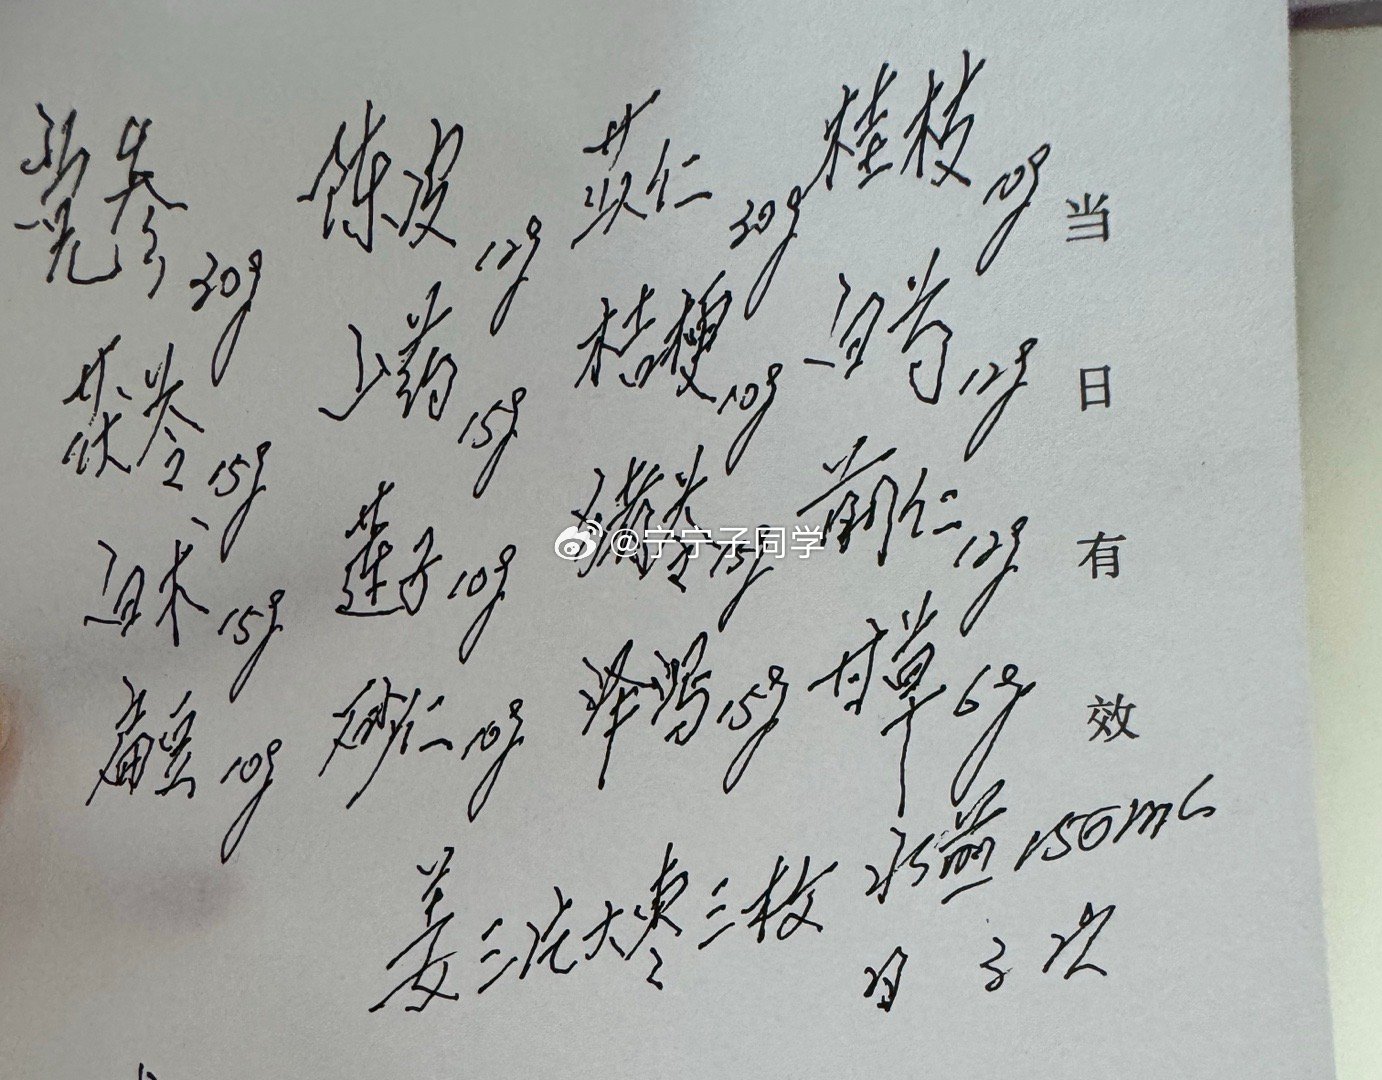 党参30g 陈皮12g 苡仁30g 桂枝10g
茯苓15g 山药15g 桔梗10g 白芍12g
白术15g 莲子10g 猪苓15g 蔻仁12g
扁豆10g 砂仁10g 泽泻15g 甘草6g
姜三片大枣三枚 水煎150ml
日3次
当日有效
@宁宁子同学